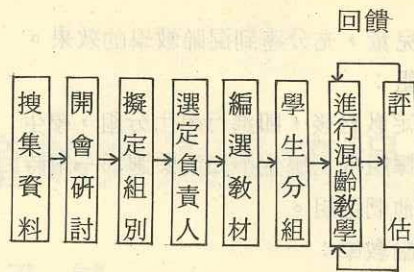 回饋
搜集資料
開會硏討
擬定組別
選定負責人
編選敎材
學生分組
進行混齡敎學
評估